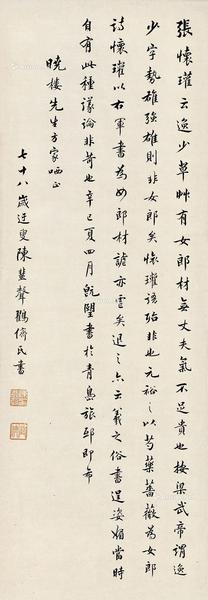 張懷瓘云逸少草有女郎材無丈夫氣不足貴也按梁武帝謂逸
少字勢雄強雄則非女郎矣懷瓘語殆非也元裕之以芍藥薔薇為女郎
詩懷瓘以右軍書為女郎材謔亦虐矣退之亦云羲之俗書逞姿媚當時
自有此種議論非苛也辛巳夏四月 書於青島旅邸即希
曉樓先生方家哂正
七十八歲迂叟陳蜚聲鶴儕氏書